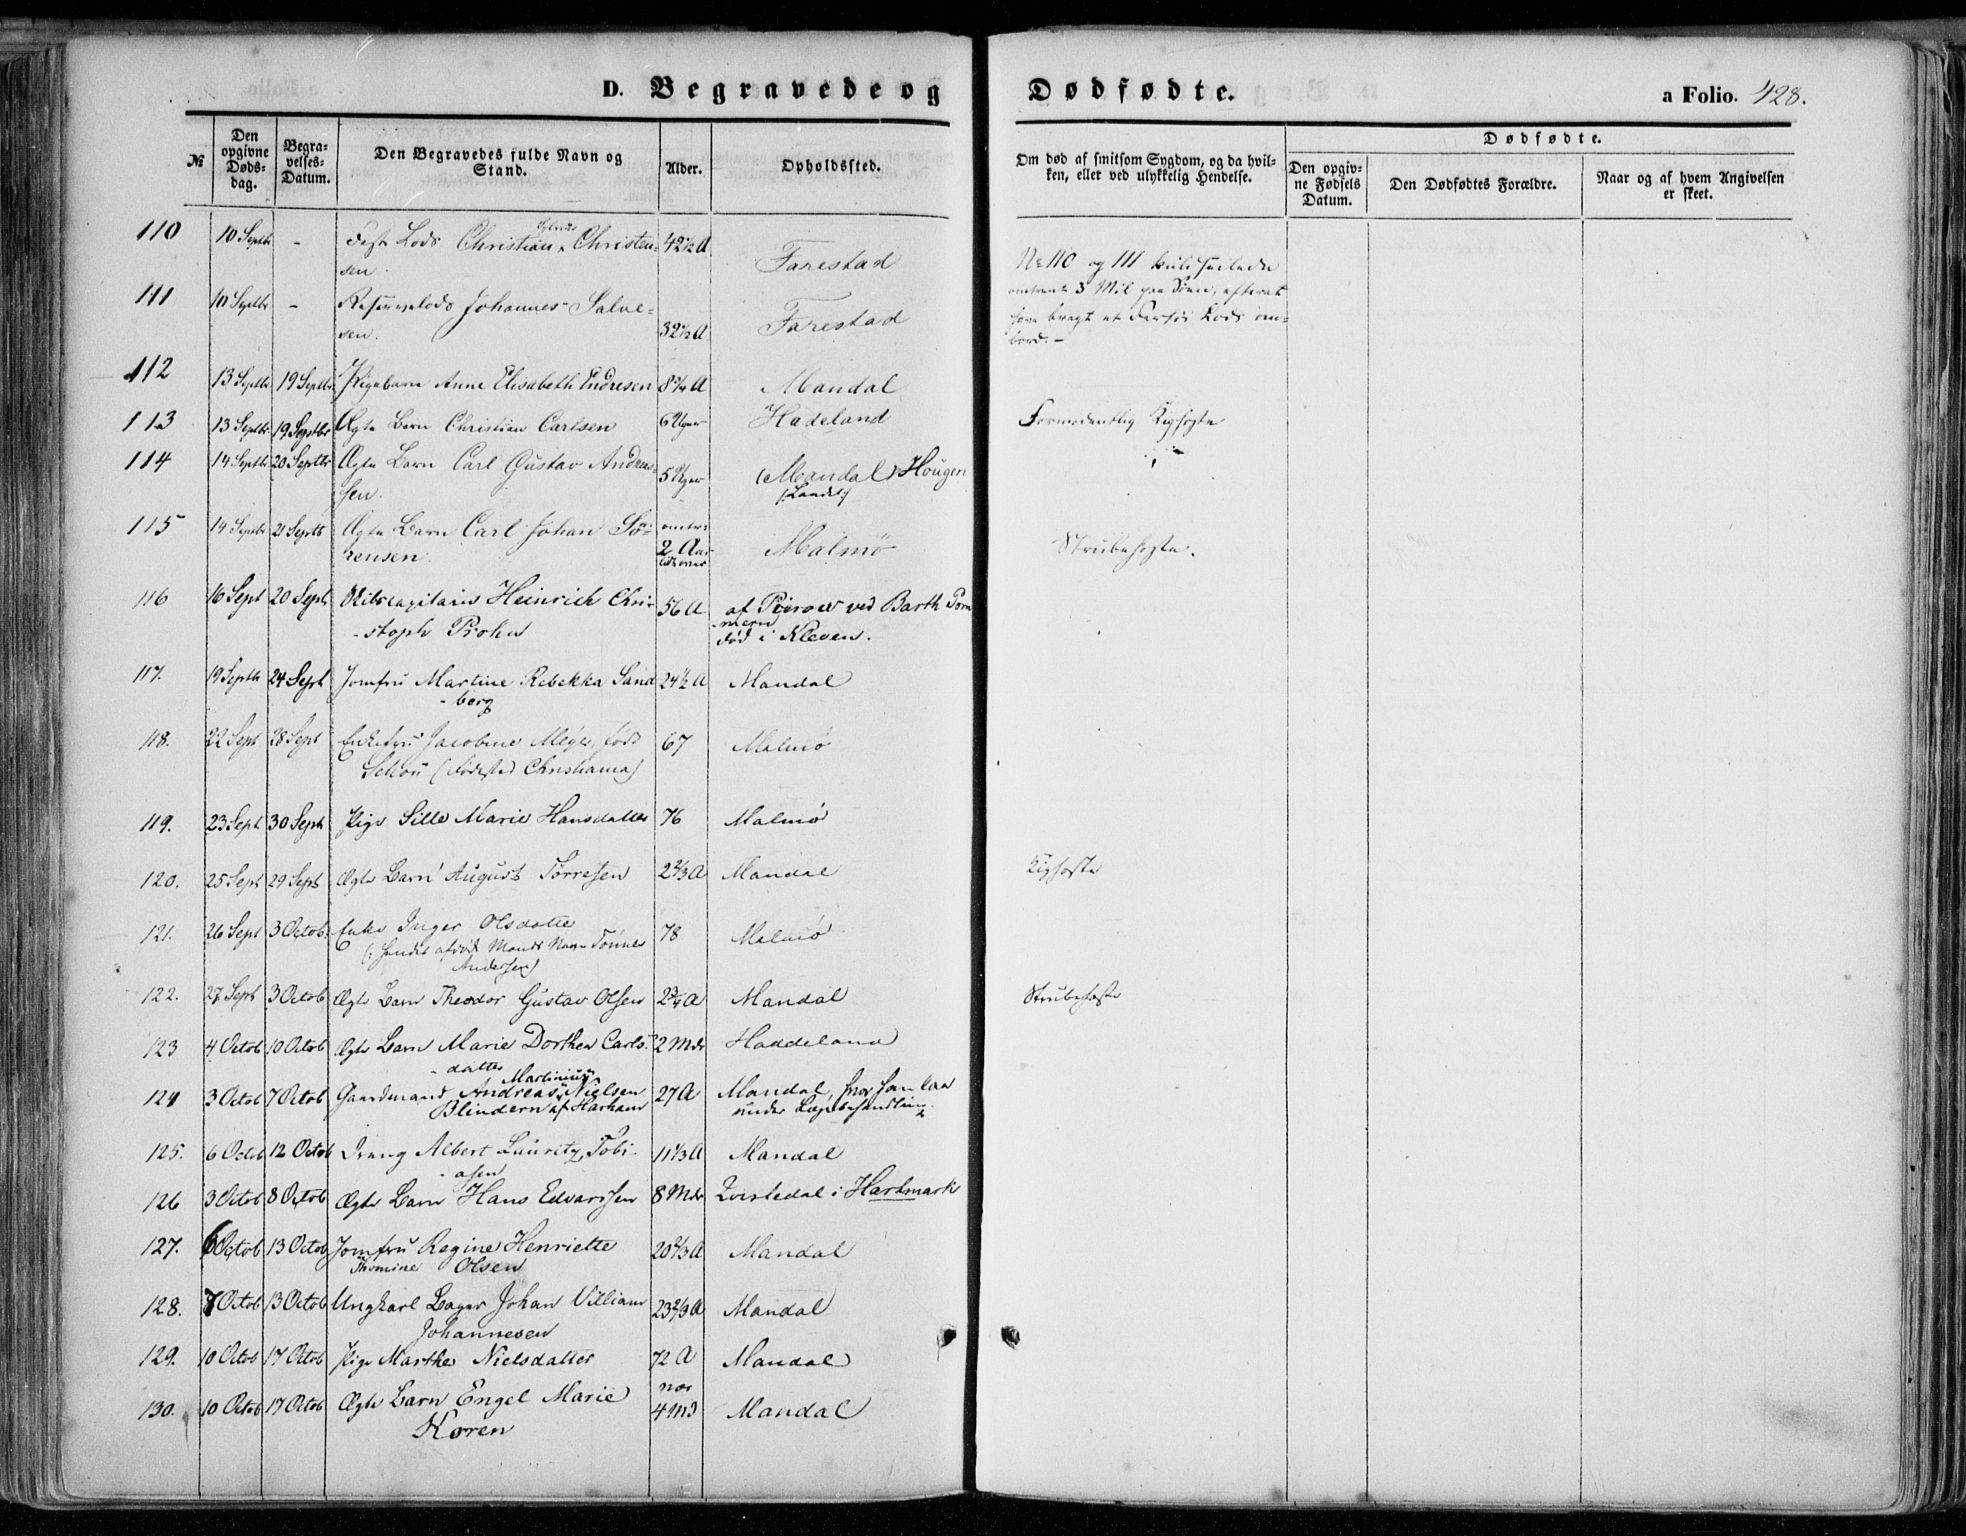 D. Begravede og Dødfødte.
a Folio. 428.
№
Den opgivne Døds-dag.
Begra-velses-Datum.
Den Begravedes fulde Navn og Stand.
Alder.
Opholdssted.
Om død af smitsom Sygdom, og da hvil-
ken, eller ved ulykkelig Hendelse.
Dødfødte.
Den opgiv-
ne Fødsels
Datum.
Den Dødfødtes Forældre.
Naar og af hvem Angivelsen
er skeet.
110 10 Septbr - Fast Lods Christian Christen- 42½ A
sen. Farestad
No 110 og 111 kuldseilede
omtrent 3 Mil paa Søen, efterat
have bragt et Fartøi Lods om-
bord.-
111 10 Septbr - Reservelods Johannes Salve-
sen. 32½ A Farestad
112 13 Septbr 19 Septbr Pigebarn Anne Elisabeth Endresen 8¾ A Mandal
113 13 Septbr 19 Septbr Ægte Barn Christian Carlsen 6 Uger Hadeland Formodentlig Kighoste
114 14 Septbr 20 Septbr Ægte Barn Carl Gustav Andreas-
sen. 5 Uger (Mandal) Hougen
(Landet)
115 14 Septbr 21 Septb Ægte Barn Carl Johan Sö-
rensen. omtr: 2 Aar Malmø Strubehoste.
116 16 Sept 20 Sept Skibscapitain Heinrich Chri- 56 A af ved Barth Pom
-stoph Prohn -mern
død i Kleven.
117. 19 Septb 24 Sept Jomfru Martine Rebekka Sand 24½ A Mandal
-berg
118. 22 Sept 28 Sept Enkefru Jacobine Meyer, født 67 Malmø
Schou (Fødested Christiania)
119. 23 Sept 30 Sept Pige Sille Marie Hansdatter 76 Malmø
120. 25 Sept 29 Sept Ægte Barn August Tørresen 2⅔ A Mandal Kighoste
121. 26 Sept 3 Octob. Enke Inger Olsdatte 78 Malmø
(: hendes afdøde Mands Navn Tønnes
Andersen)
122. 27 Sept 3 Octob Ægte Barn Theodor Gustav Olsen 2¾ A Mandal Strubehoste
123 4 Octob 10 Octob Ægte Barn Marie Dorthea Carls- 2 Mdr Haddeland
-datter
124 3 Octob 7 Octob Gaardmand Andreas Martinius Nielsen 27 A Mandal, hvor han laa
Blindern af Harham under Lægebehandling.
125. 6 Octob 12 Octob Dreng Albert Lauritz Tobi- 11⅓ A Mandal
-asen
126 3 Octob 8 Octob Ægte Barn Hans Edvardsen 8 Mdr i Hartmark
127. 6 Octob 13 Octob Jomfru Regine Henriette 20⅔ A Mandal
Thomine Olsen
128. 8 Octob 13 Octob Ungkarl Bager Johan Villiam 23⅔ A Mandal
Johannesen
129. 10 Octob 17 Octob Pige Marthe Nielsdatter 72 A Mandal
130. 10 Octob 17 Octob Ægte Barn Engel Marie nær 4 Md Mandal
Koren